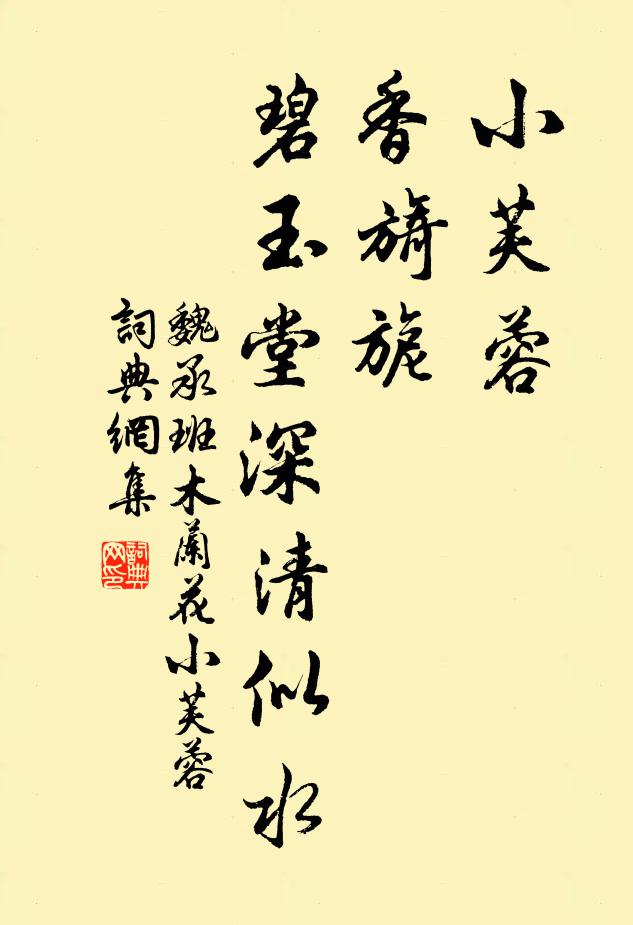 小芙蓉
香旖旎
碧玉堂深清似水
魏承班木蘭花小芙蓉
詞典網集
詞典网印